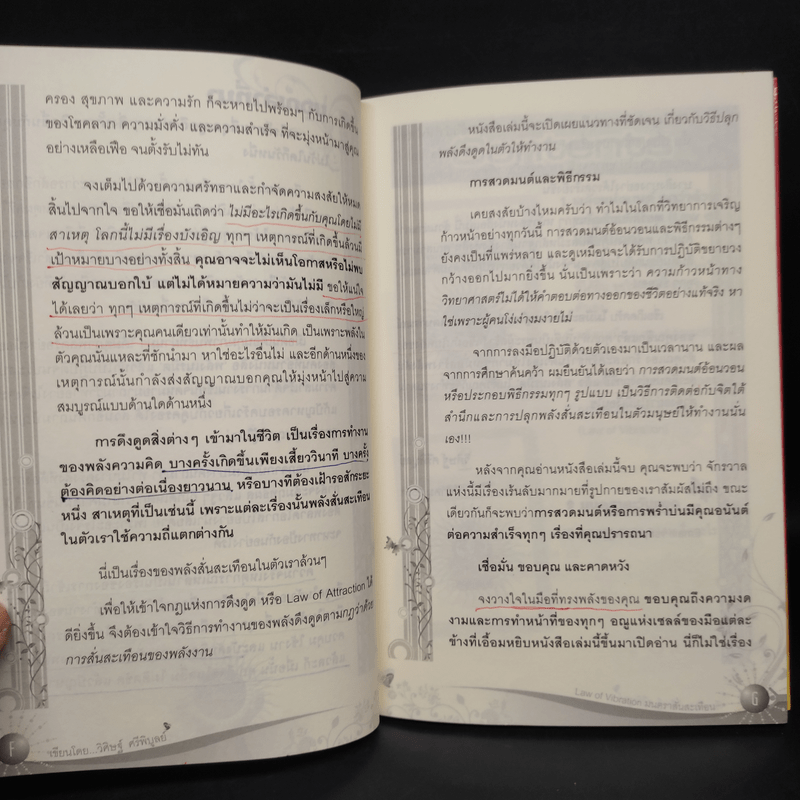 ครอง สุขภาพ และความรัก ก็จะหายไปพร้อมๆ กับการเกิดขึ้น
ของโชคลาภ ความมั่งคั่ง และความสำเร็จ ที่จะมุ่งหน้ามาสู่คุณ
อย่างเหลือเฟือ จนตั้งรับไม่ทัน
จงเต็มไปด้วยความศรัทธาและกำจัดความสงสัยให้หมด
สิ้นไปจากใจ ขอให้เชื่อมั่นเถิดว่า ไม่มีอะไรเกิดขึ้นกับคุณโดยไม่มี
สาเหตุ โลกนี้ไม่มีเรื่องบังเอิญ ทุกๆ เหตุการณ์ที่เกิดขึ้นล้วนมี
เป้าหมายบางอย่างทั้งสิ้น คุณอาจจะไม่เห็นโอกาสหรือไม่พบ
สัญญาณบอกใบ้ แต่ไม่ได้หมายความว่ามันไม่มี ขอให้แน่ใจ
ได้เลยว่า ทุกๆ เหตุการณ์ที่เกิดขึ้นไม่ว่าจะเป็นเรื่องเล็กหรือใหญ่
ล้วนเป็นเพราะคุณคนเดียวเท่านั้นทำให้มันเกิด เป็นเพราะพลังใน
ตัวคุณนั่นแหละที่ชักนำมา หาใช่อะไรอื่นไม่ และอีกด้านหนึ่งของ
เหตุการณ์นั้นกำลังส่งสัญญาณบอกคุณให้มุ่งหน้าไปสู่ความ
สมบูรณ์แบบด้านใดด้านหนึ่ง
การดึงดูดสิ่งต่างๆ เข้ามาในชีวิต เป็นเรื่องการทำงาน
ของพลังความคิด บางครั้งเกิดขึ้นเพียงเสี้ยววินาที บางครั้ง
ต้องคิดอย่างต่อเนื่องยาวนาน หรือบางทีต้องเฝ้ารอสักระยะ
หนึ่ง สาเหตุที่เป็นเช่นนี้ เพราะแต่ละเรื่องนั้นพลังสั่นสะเทือน
ในตัวเราใช้ความถี่แตกต่างกัน
นี่เป็นเรื่องของพลังสั่นสะเทือนในตัวเราล้วนๆ
เพื่อให้เข้าใจกฎแห่งการดึงดูด หรือ Law of Attraction ได้
ดียิ่งขึ้น จึงต้องเข้าใจวิธีการทำงานของพลังดึงดูดตามกฎว่าด้วย
การสั่นสะเทือนของพลังงาน
F
เขียนโดย...วิศิษฐ์ ศรีพิบูลย์
หนังสือเล่มนี้จะเปิดเผยแนวทางที่ชัดเจน เกี่ยวกับวิธีปลุก
พลังดึงดูดในตัวให้ทำงาน
การสวดมนต์และพิธีกรรม
เคยสงสัยบ้างไหมครับว่า ทำไมในโลกที่วิทยาการเจริญ
ก้าวหน้าอย่างทุกวันนี้ การสวดมนต์อ้อนวอนและพิธีกรรมต่างๆ
ยังคงเป็นที่แพร่หลาย และดูเหมือนจะได้รับการปฏิบัติขยายวง
กว้างออกไปมากยิ่งขึ้น นั่นเป็นเพราะว่า ความก้าวหน้าทาง
วิทยาศาสตร์ไม่ได้ให้คำตอบต่อทางออกของชีวิตอย่างแท้จริง หา
ใช่เพราะผู้คนโง่เง่างมงายไม่
จากการลงมือปฏิบัติด้วยตัวเองมาเป็นเวลานาน และผล
จากการศึกษาค้นคว้า ผมยืนยันได้เลยว่า การสวดมนต์อ้อนวอน
หรือประกอบพิธีกรรมทุกๆ รูปแบบ เป็นวิธีการติดต่อกับจิตใต้
สำนึกและการปลุกพลังสั่นสะเทือนในตัวมนุษย์ให้ทำงานนั่น
เอง!!!
หลังจากคุณอ่านหนังสือเล่มนี้จบ คุณจะพบว่า จักรวาล
แห่งนี้มีเรื่องเร้นลับมากมายที่รูปกายของเราสัมผัสไม่ถึง ขณะ
เดียวกันก็จะพบว่าการสวดมนต์หรือการพร่ำบ่นมีคุณอนันต์
ต่อความสำเร็จทุกๆ เรื่องที่คุณปรารถนา
เชื่อมั่น ขอบคุณ และคาดหวัง
จงวางใจในมือที่ทรงพลังของคุณ ขอบคุณถึงความงด
งามและการทำหน้าที่ของทุกๆ อณูแห่งเซลล์ของมือแต่ละ
ข้างที่เอื้อมหยิบหนังสือเล่มนี้ขึ้นมาเปิดอ่าน นี่ก็ไม่ใช่เรื่อง
Law of Vibration มนตราสั่นสะเทือน
G